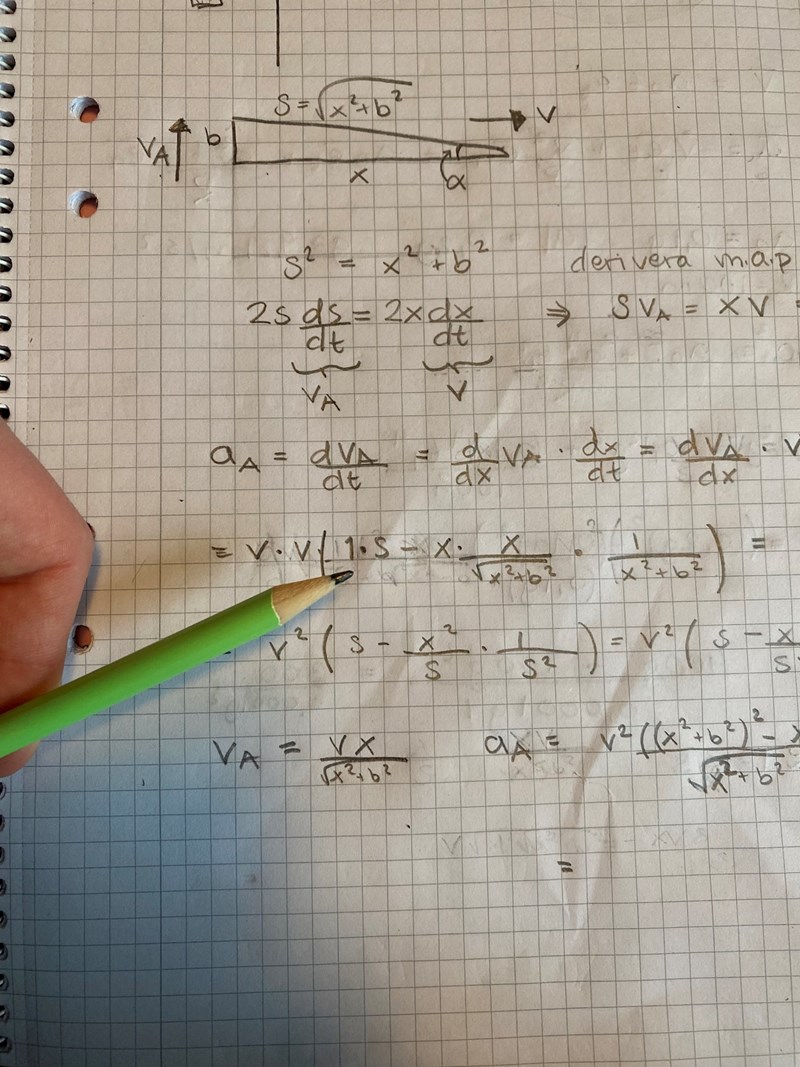 S = √(x²+b²)
V
V_A
b
x
α
s² = x² + b² derivera m.a.p
2s ds/dt = 2x dx/dt ⇒ SV_A = XV =
V_A V
a_A = dV_A/dt = d/dx V_A · dx/dt = dV_A/dx · V
= V · V ( 1·S − x · x/√(x²+b²) · 1/(x²+b²) ) =
V² ( S − x²/S · 1/S² ) = V² ( S − x
V_A = VX/√(x²+b²) a_A = V²((x²+b²)² − x / √(x²+b²
=